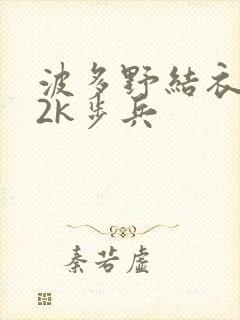 波多野結衣
2k步兵
秦若虛